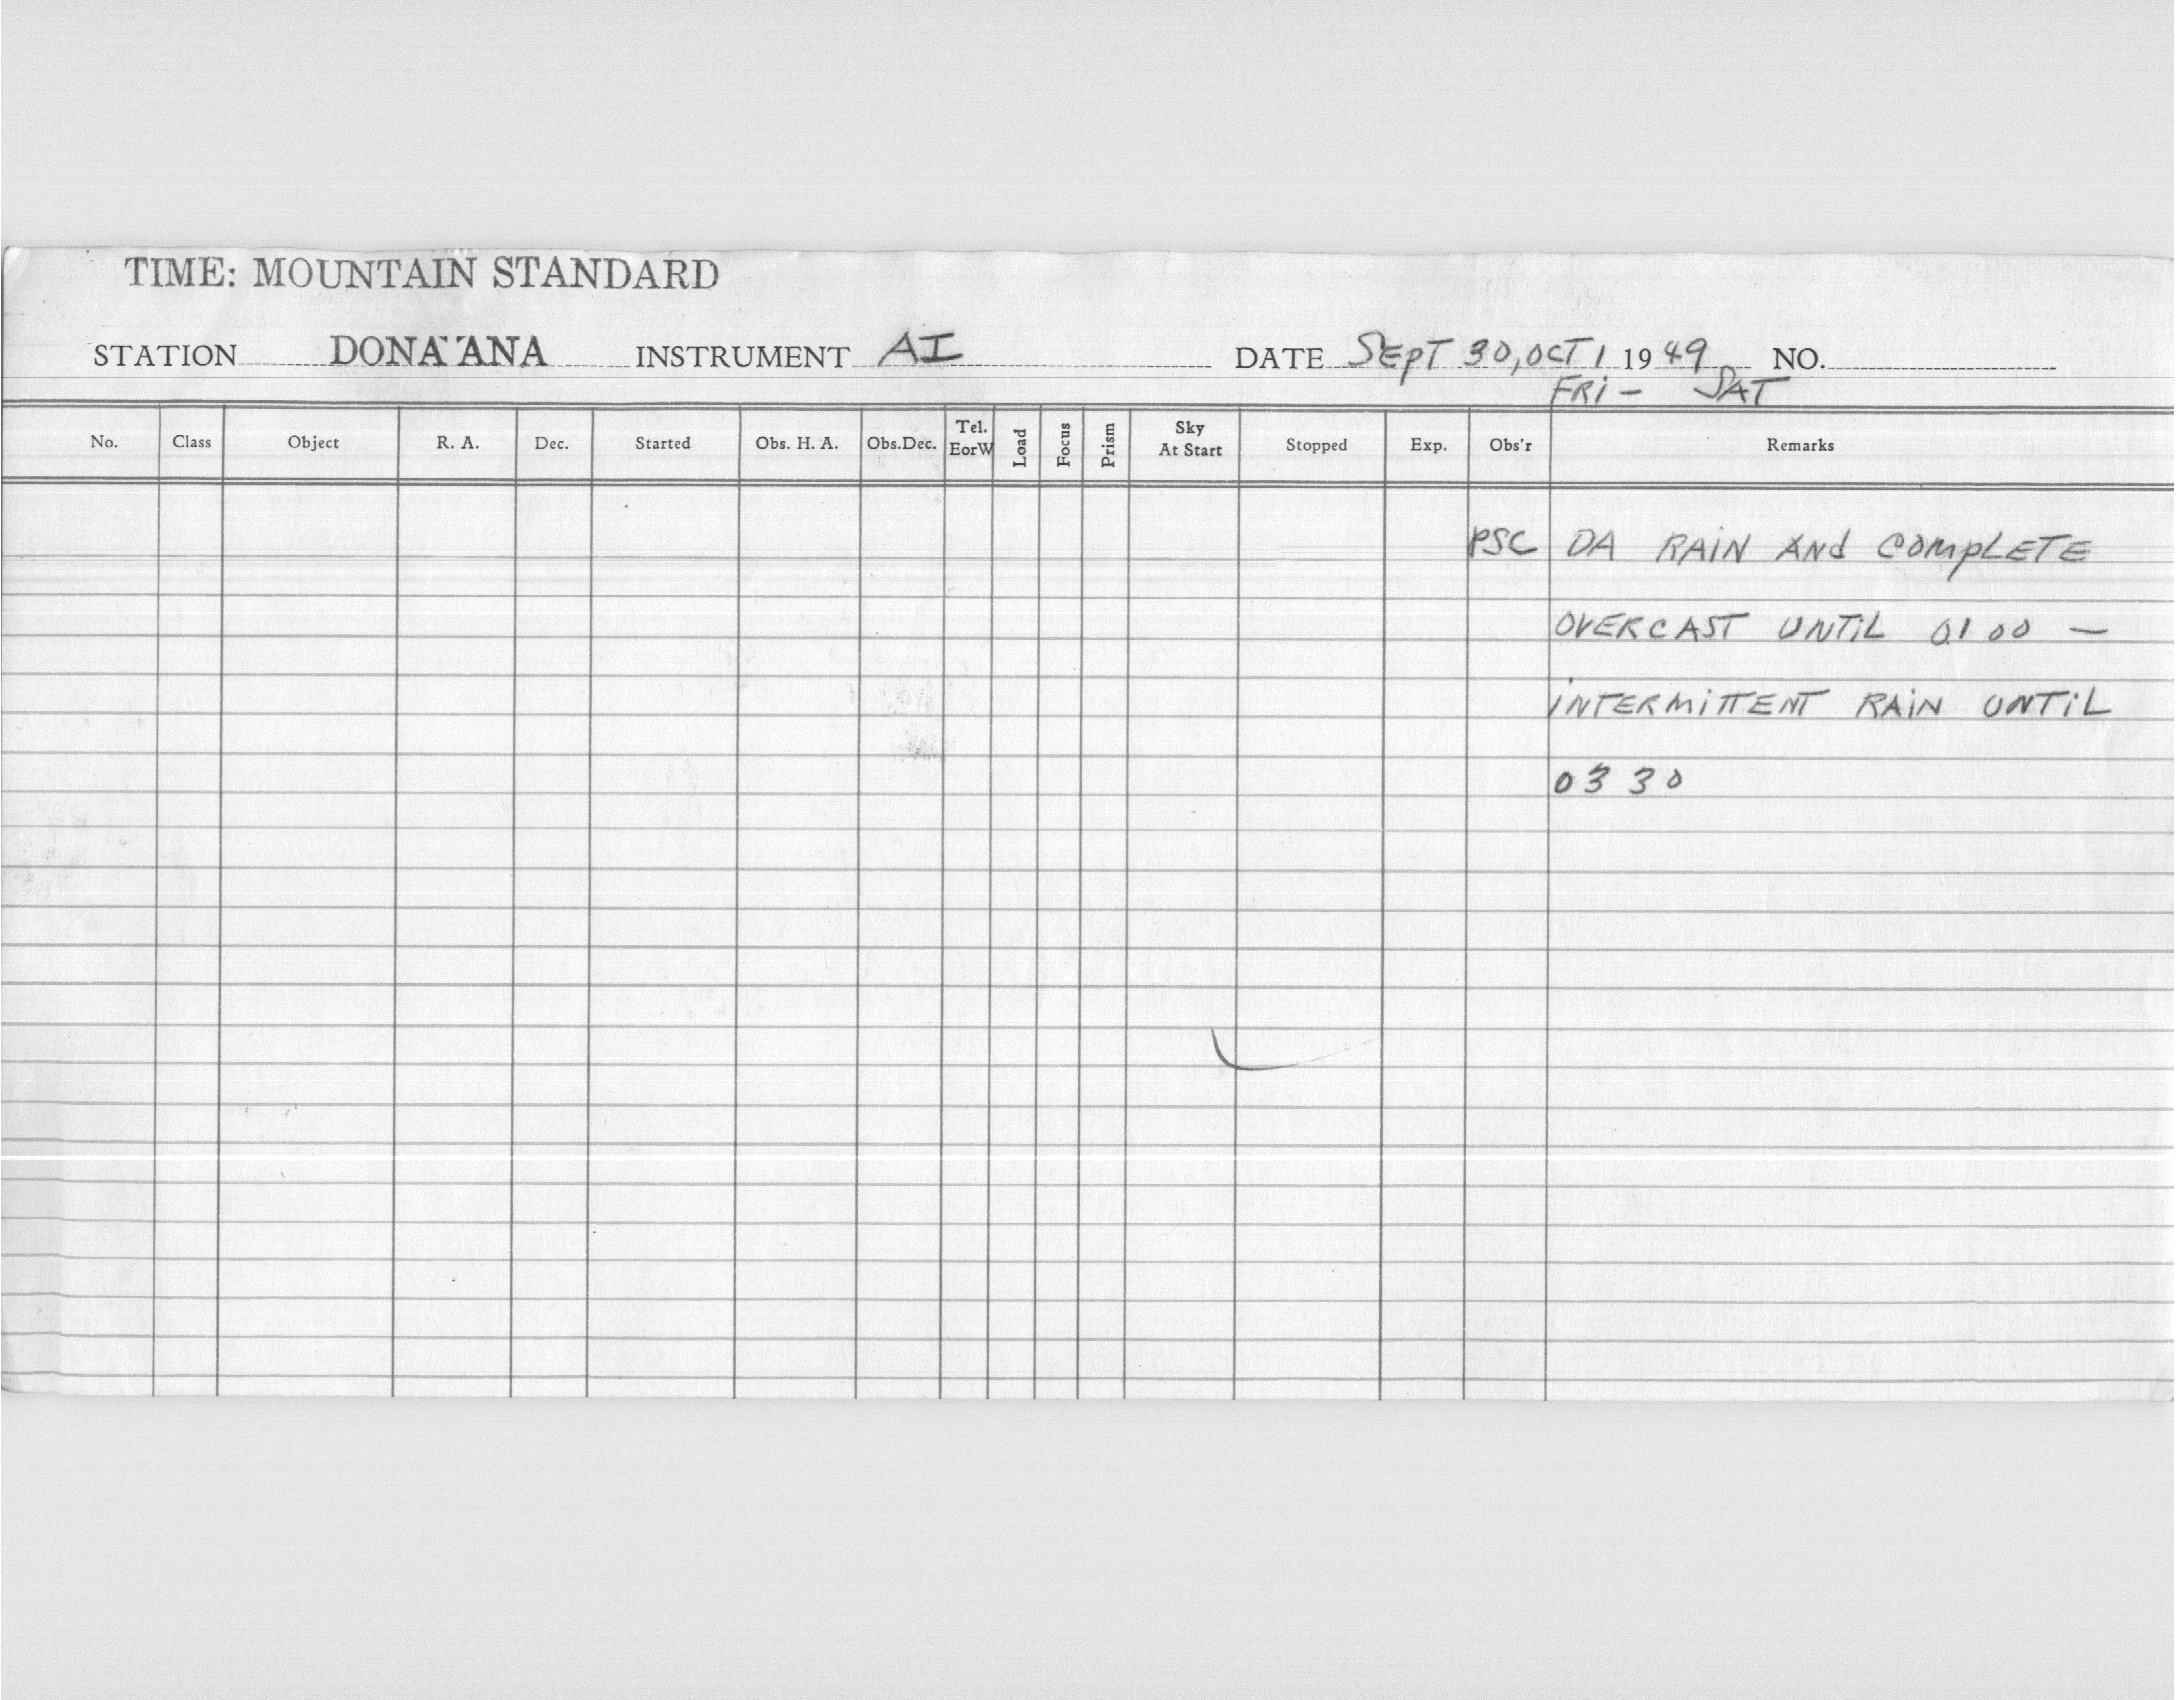 TIME: MOUNTAIN STANDARD
STATION DONA ANA INSTRUMENT AI DATE SEPT 30, OCT 1 1949 NO.
FRI - SAT
No. Class Object R. A. Dec. Started Obs. H. A. Obs.Dec. Tel. EorW Load Focus Prism Sky At Start Stopped Exp. Obs'r Remarks
PSC DA RAIN AND COMPLETE
OVERCAST UNTIL 0100 —
INTERMITTENT RAIN UNTIL
0330